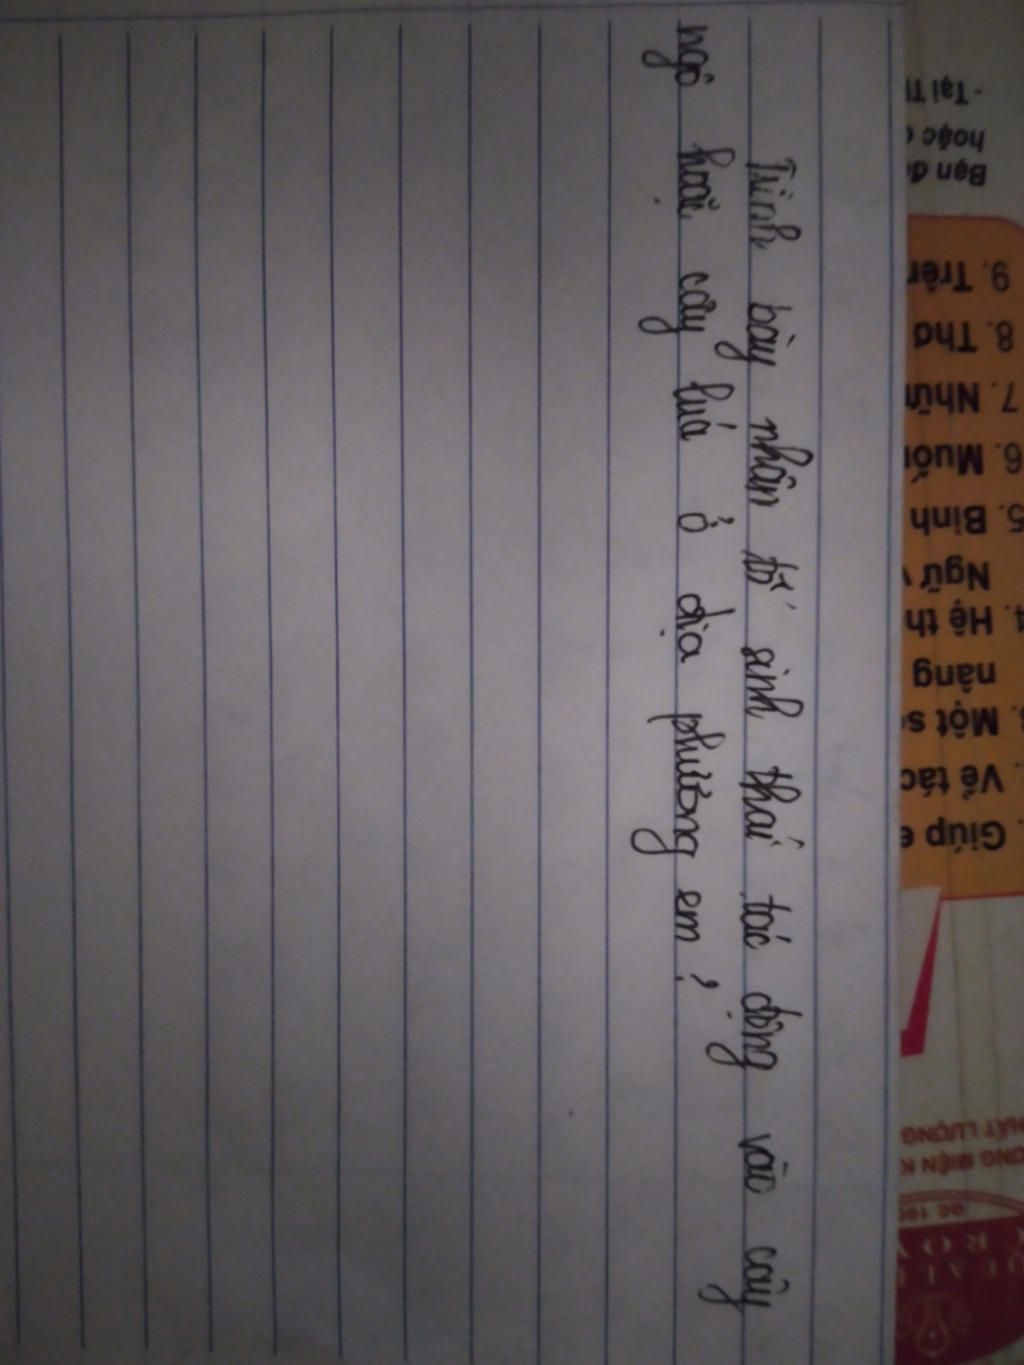 Trình bày nhân tố sinh thái tác động vào cây
ngô hoặc cây lúa ở địa phương em?
- Tại
hoặc
Bạn
9. Trên
8. Thơ
7. Những
6. Muốn
5. Bình
Ngữ
4. Hệ
năng
Một
Về tác
Giúp
HẤT LƯỢNG